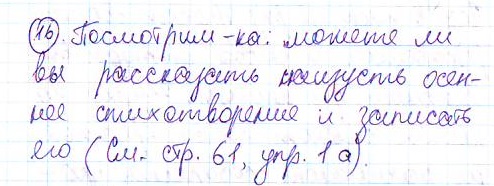 16. Посмотрим-ка: можете ли
вы рассказать наизусть осен-
нее стихотворение и записать
его (См. стр. 61, упр. 1а).